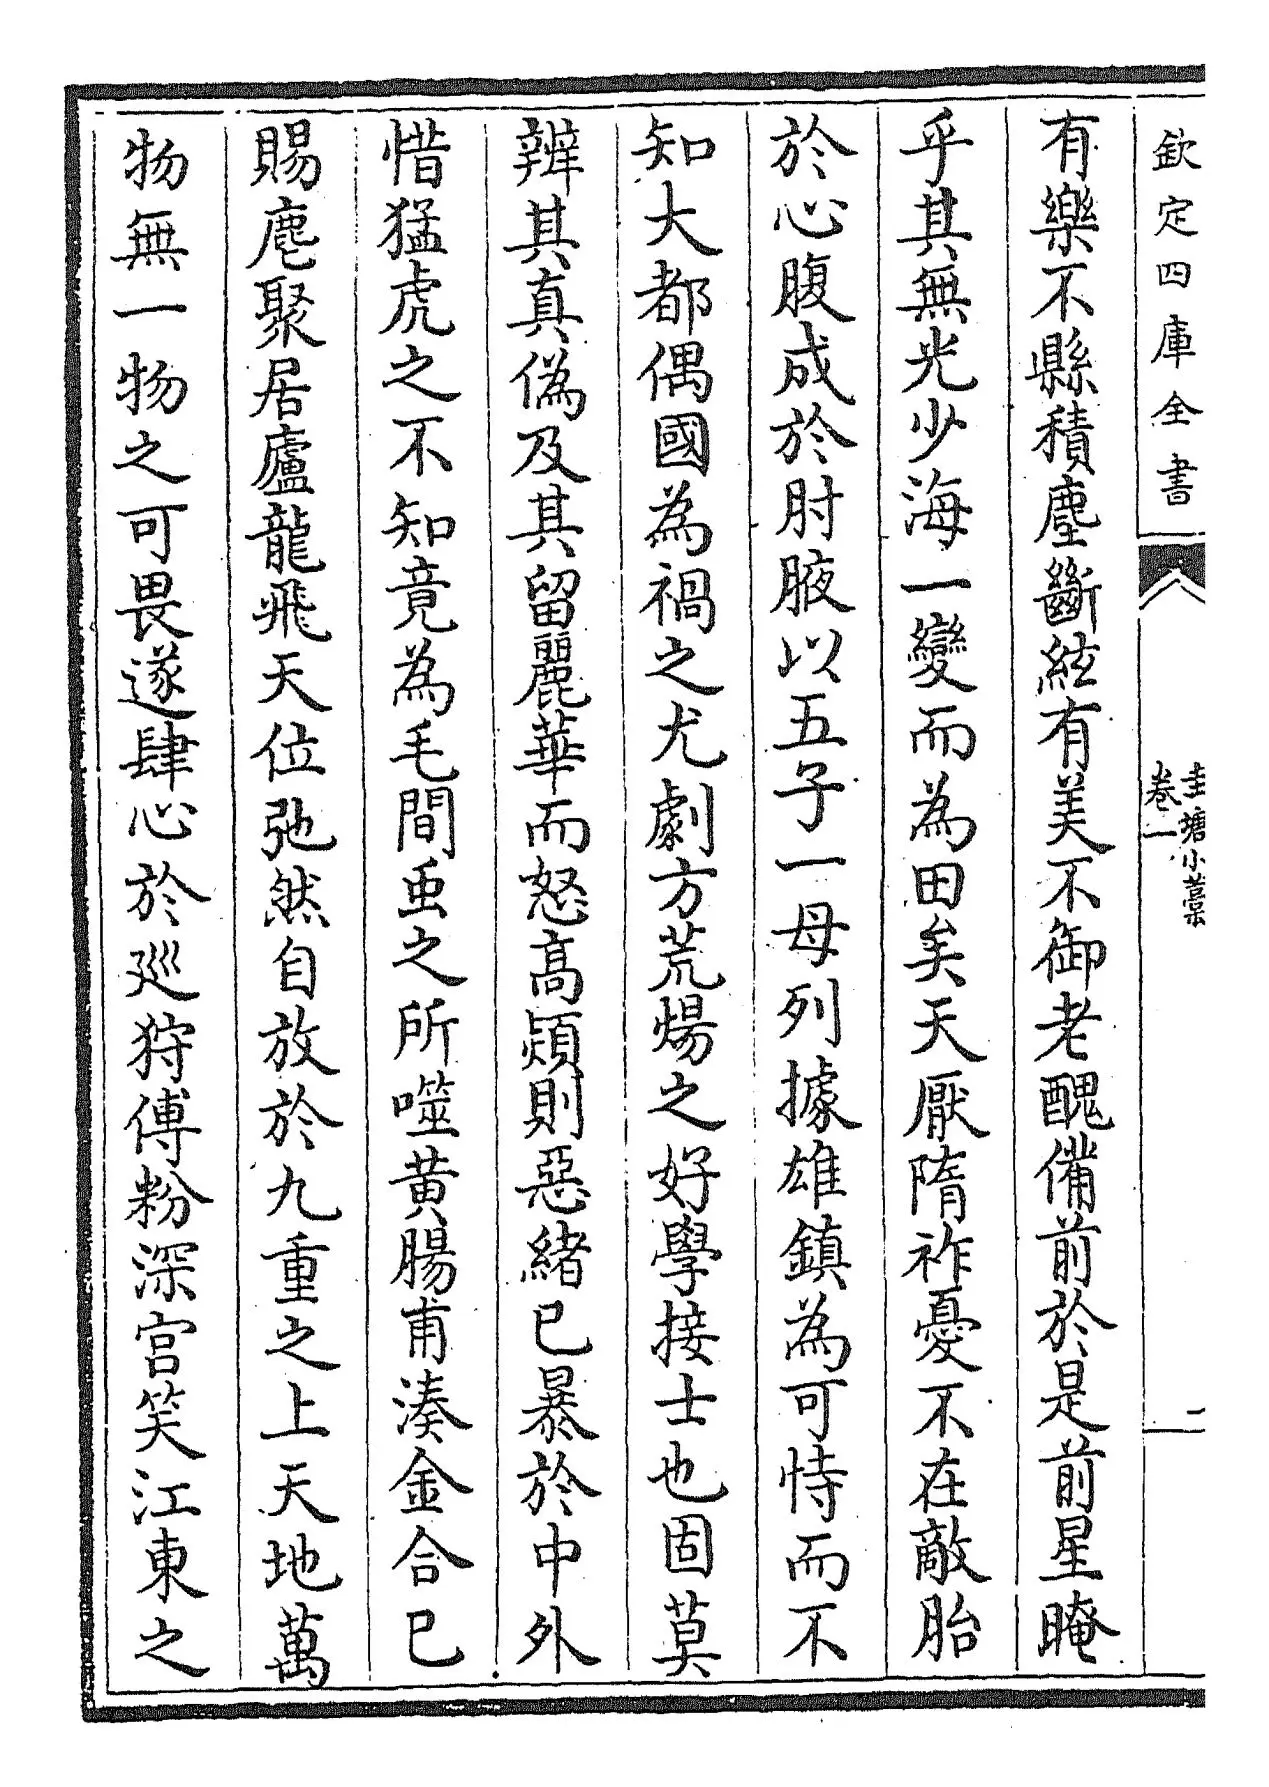 欽定四庫全書
圭塘小藁
卷一
二
有樂不縣積塵斷絃有美不御老醜備前於是前星晻
乎其無光少海一變而為田矣天厭隋祚憂不在敵胎
於心腹成於肘腋以五子一母列據雄鎮為可恃而不
知大都偶國為禍之尤劇方荒煬之好學接士也固莫
辨其真偽及其留麗華而怒高熲則惡緒已暴於中外
惜猛虎之不知竟為毛間虫之所噬黄腸甫湊金合已
賜麀聚居廬龍飛天位弛然自放於九重之上天地萬
物無一物之可畏遂肆心於巡狩傅粉深宫笑江東之